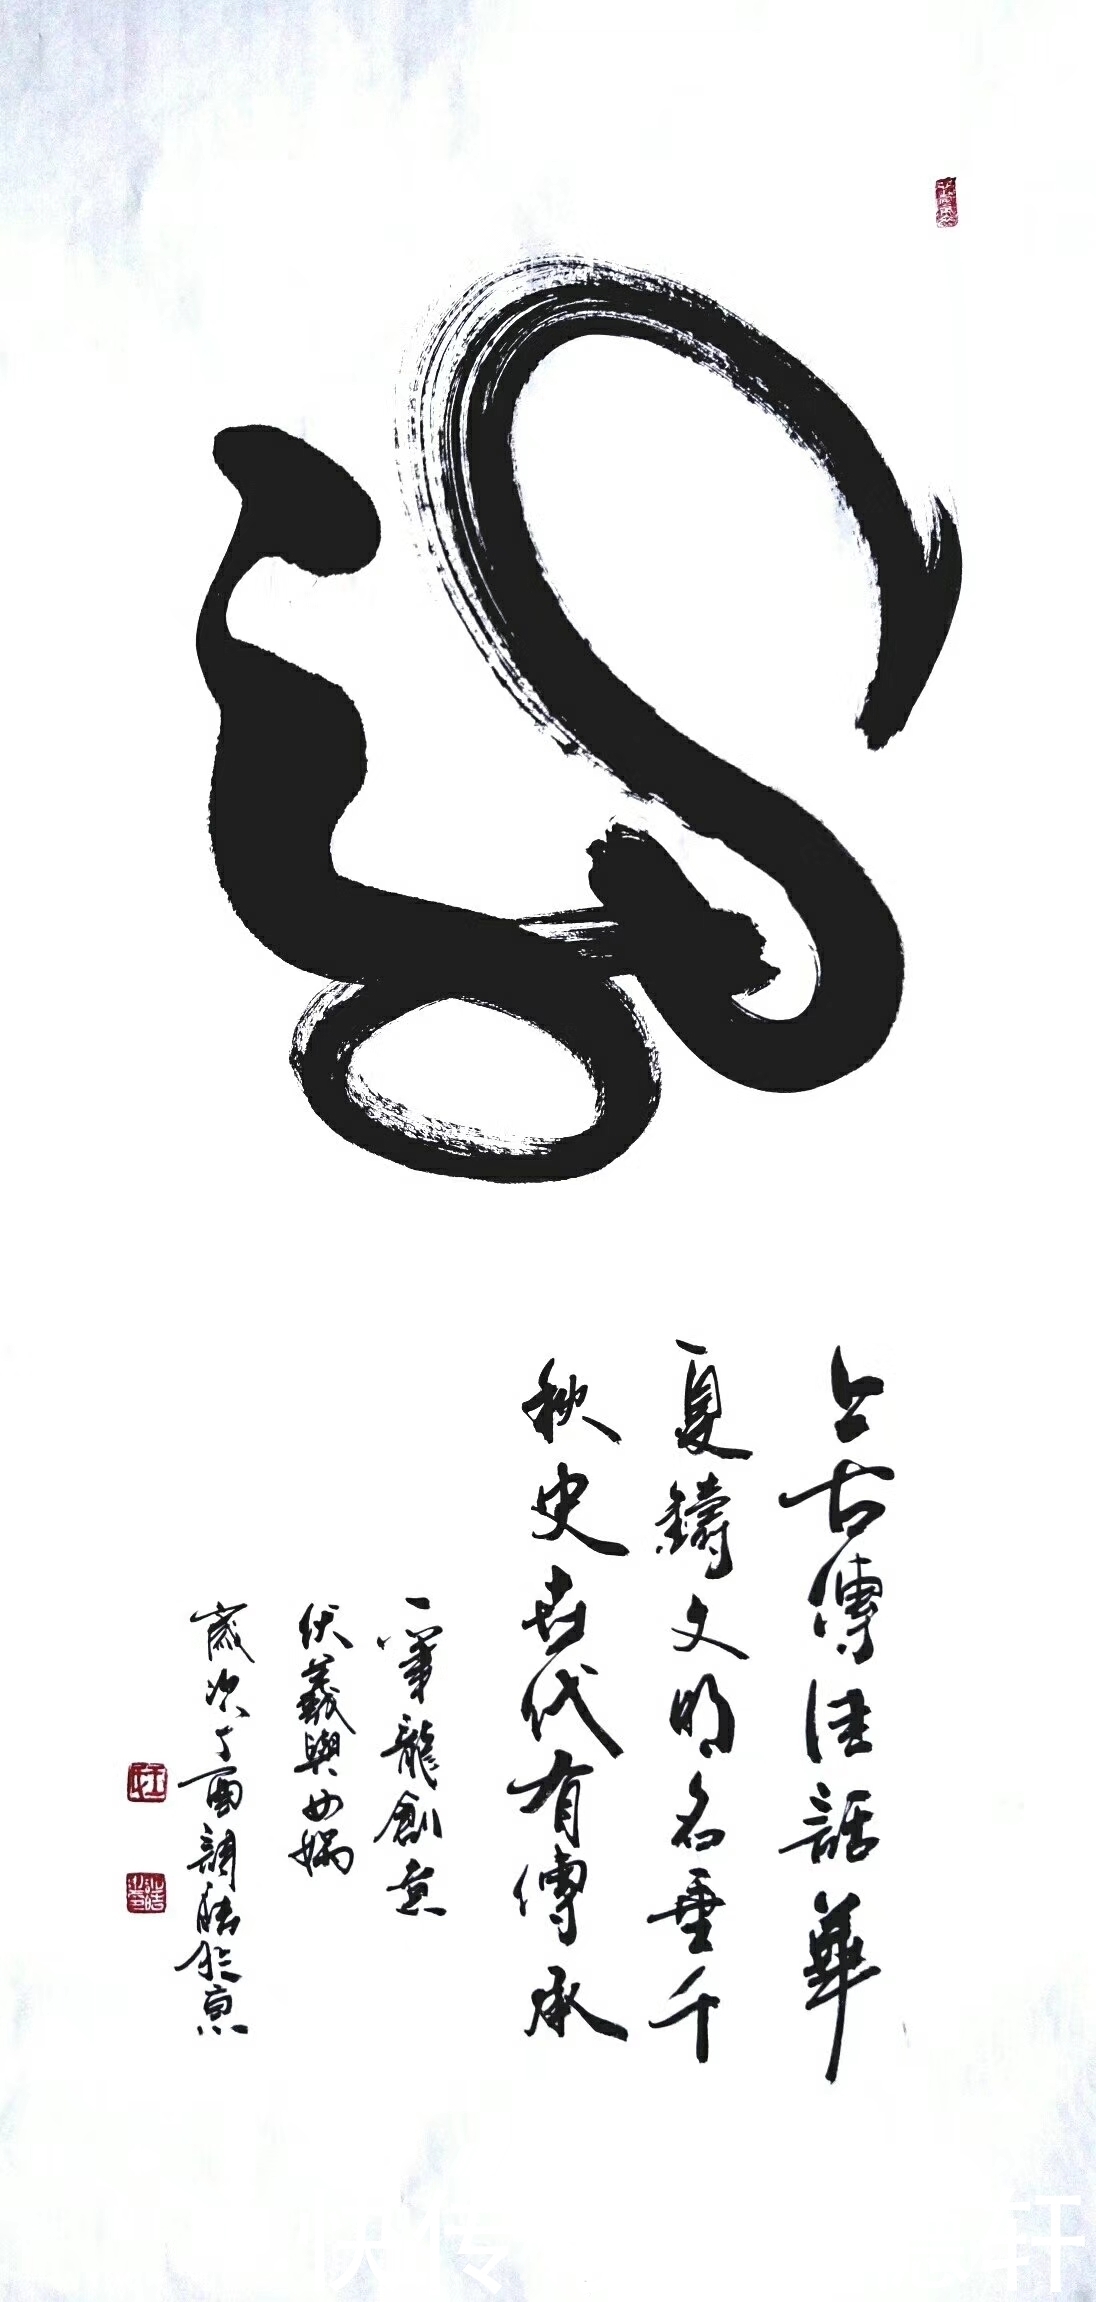 上古傳佳話華
夏鑄文明名垂千
秋史世代有傳承
一筆龍創意
伏羲與女媧
歲次丁酉